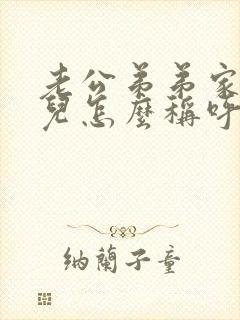 老公弟弟家
兒怎麼稱呼
納蘭子童